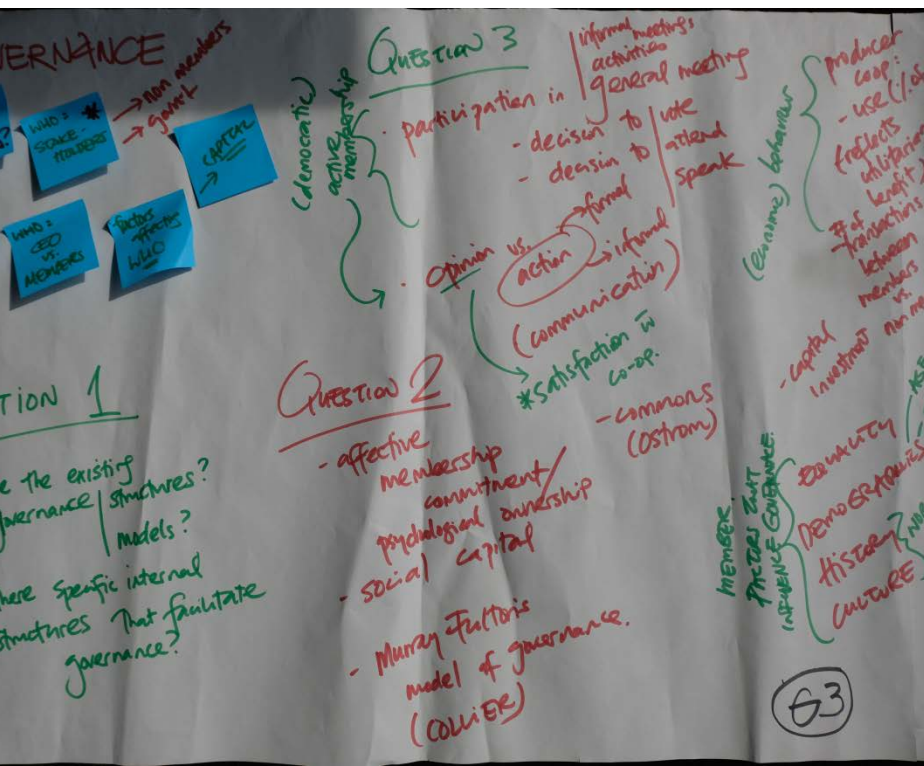 ERNANCE
?
WHO:
STAKE-
HOLDERS
*
→ non members
→ gov't
→ CAPITAL
WHO:
CEO
vs.
MEMBERS
factors
affects
WHO
TION 1
e the existing
governance | structures?
models?
here specific internal
structures that facilitate
governance?
QUESTION 3
(democratic)
active
membership
· participation in | informal meetings
activities
general meeting
- decision to | vote
- decision to | attend
speak
· opinion vs. action → formal
→ informal
(communication)
*satisfaction w
co-op.
QUESTION 2
- affective
membership
commitment/
psychological ownership
- social capital
- Murray Fulton's
model of governance.
(COLLIER)
- commons
(Ostrom)
(economic) behaviour
producer
coop:
- use (% o
(reflects
utilitaria
benefit)
# of
transactions
between
members
vs.
non m
- capital
investment
MEMBER
FACTORS THAT
INFLUENCE GOVERNANCE.
EQUALITY
DEMOGRAPHICS
HISTORY
CULTURE
G3